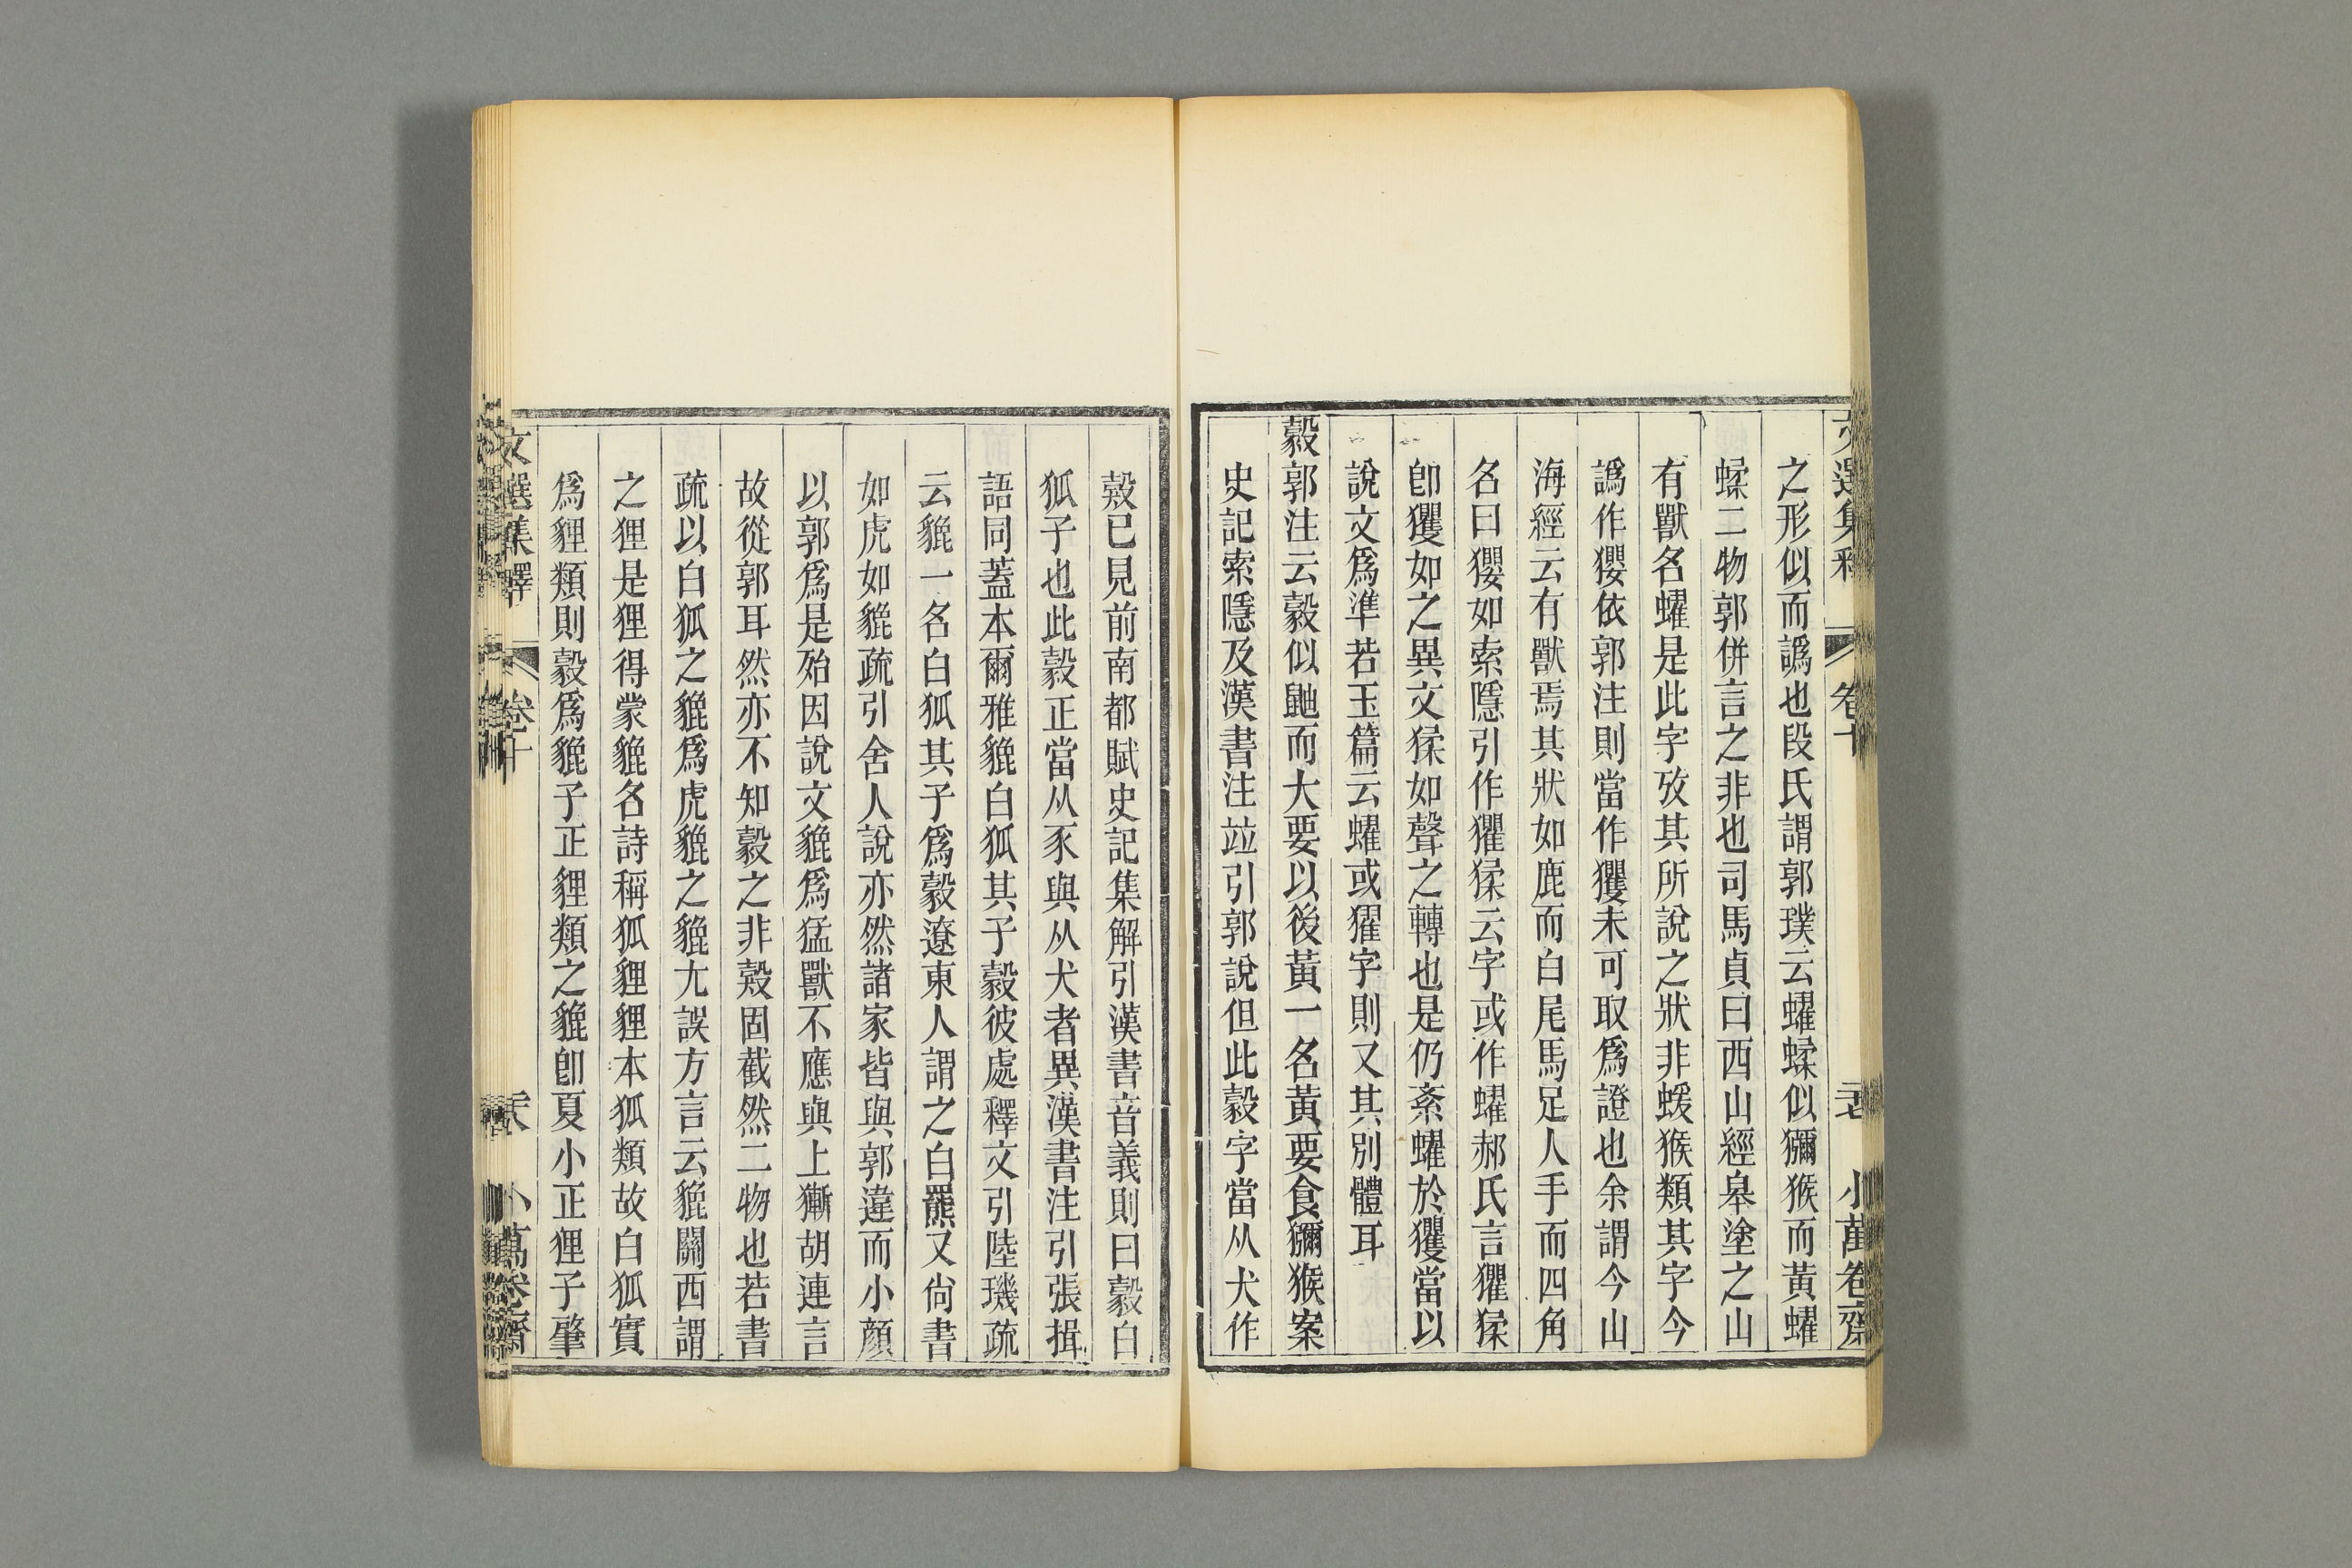 文選集釋 卷十 小萬卷齋
之形似而譌也段氏謂郭璞云蠗蝚似獼猴而黃蠗
蝚二物郭併言之非也司馬貞曰西山經皋塗之山
有獸名蠗是此字攷其所說之狀非蝯猴類其字今
譌作玃依郭注則當作玃未可取爲證也余謂今山
海經云有獸焉其狀如鹿而白尾馬足人手而四角
名曰玃如索隱引作玃猱云字或作蠗郝氏言玃猱
卽玃如之異文猱如聲之轉也是仍紊蠗於玃當以
說文爲準若玉篇云蠗或㺟字則又其別體耳
豰郭注云豰似鼬而大要以後黃一名黃要食獼猴案
史記索隱及漢書注竝引郭說但此豰字當从犬作
㺉已見前南都賦史記集解引漢書音義則曰豰白
狐子也此豰正當从豕與从犬者異漢書注引張揖
語同蓋本爾雅貔白狐其子豰彼處釋文引陸璣疏
云貔一名白狐其子爲豰遼東人謂之白羆又尙書
如虎如貔疏引舍人說亦然諸家皆與郭違而小顏
以郭爲是殆因說文貔爲猛獸不應與上獑胡連言
故從郭耳然亦不知豰之非㺉固截然二物也若書
疏以白狐之貔爲虎貔之貔尤誤方言云貔關西謂
之狸是狸得蒙貔名詩稱狐貍貍本狐類故白狐實
爲貍類則豰爲貔子正貍類之貔卽夏小正狸子肇
文選集釋 卷十 小萬卷齋